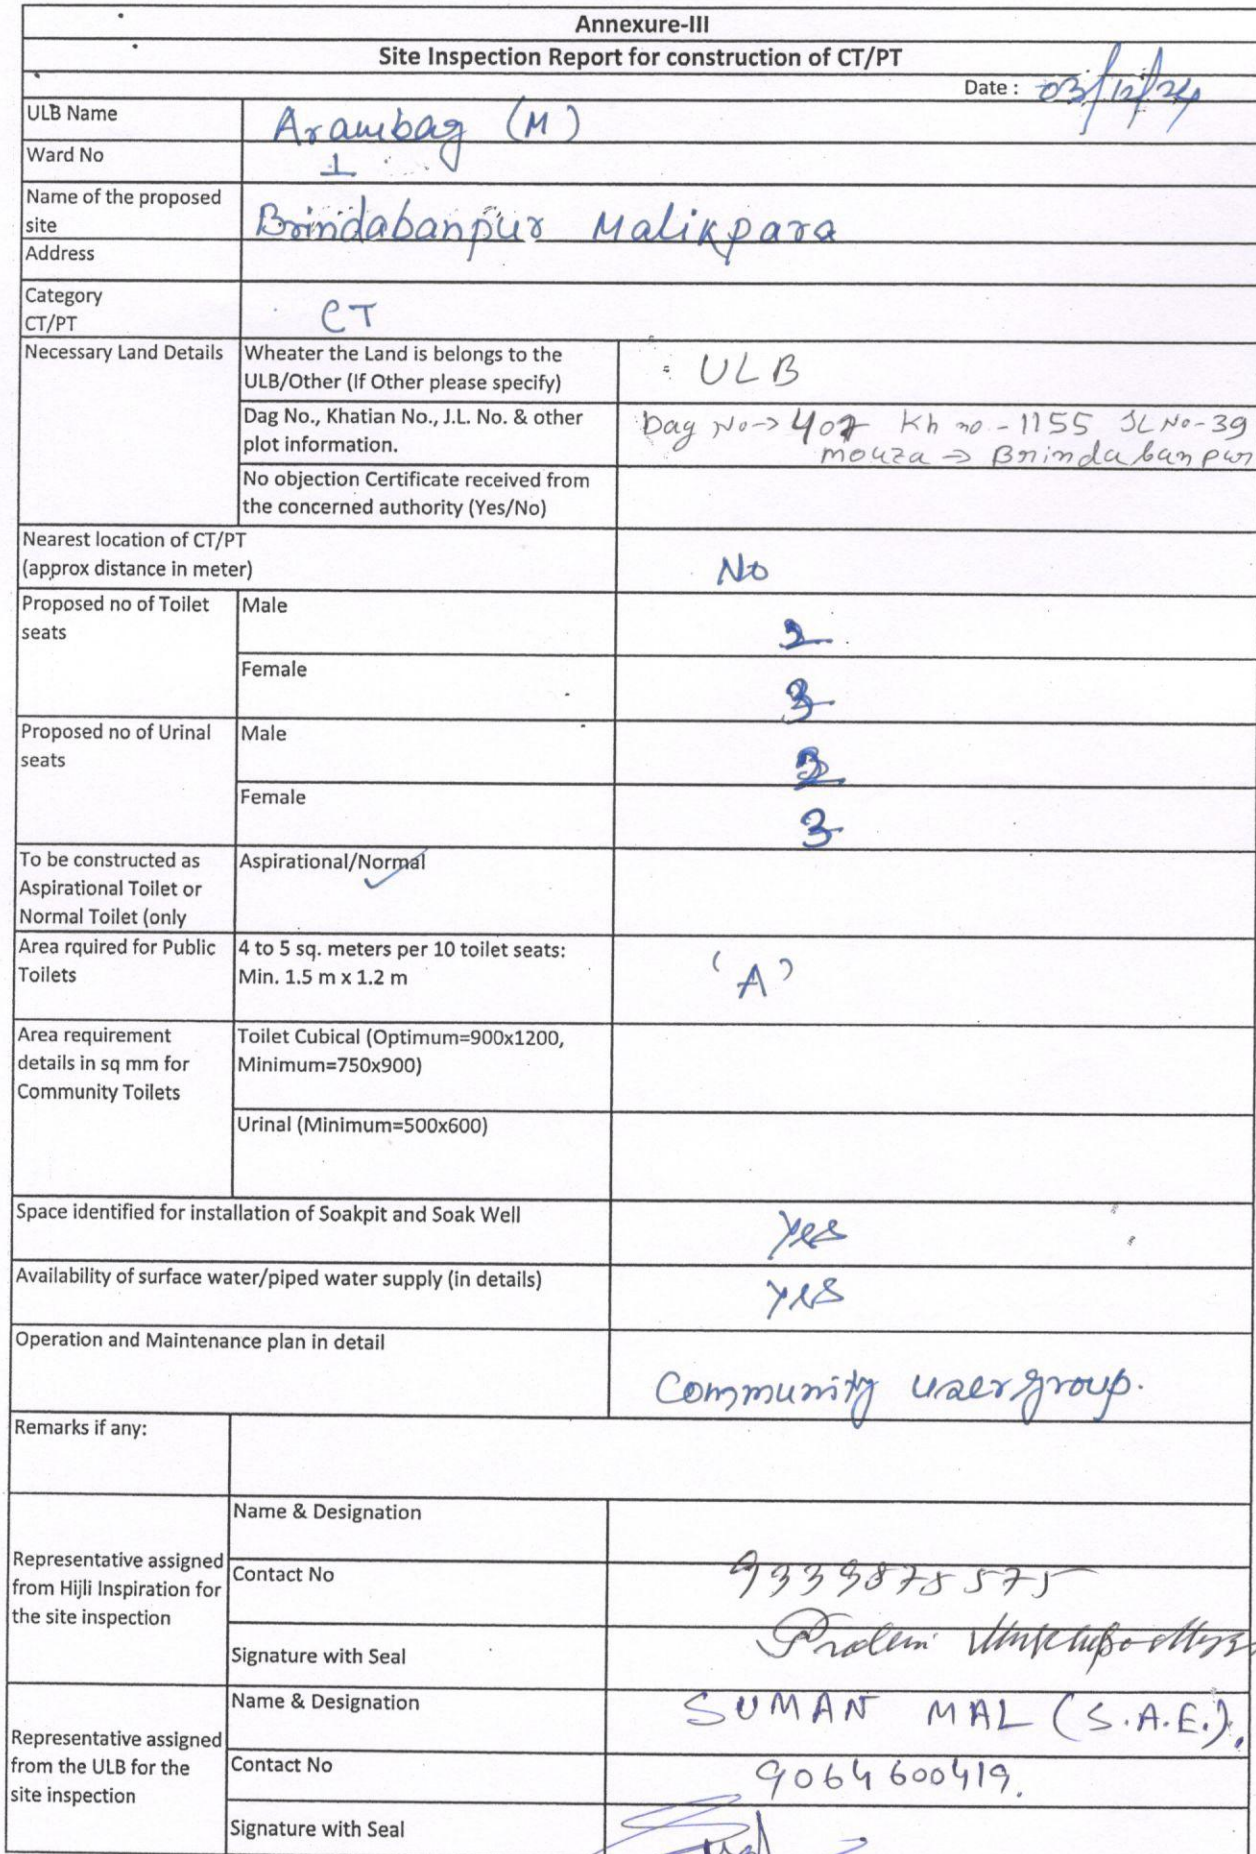 Annexure-III
Site Inspection Report for construction of CT/PT
Date : 03/12/24
ULB Name Arambag (M)
Ward No 1
Name of the proposed
site Brindabanpur Malikpara
Address
Category
CT/PT CT
Necessary Land Details Wheater the Land is belongs to the
ULB/Other (If Other please specify) ULB
Dag No., Khatian No., J.L. No. & other
plot information.
Dag No-> 407 Kh no - 1155 JL No-39
mouza -> Brindabanpur
No objection Certificate received from
the concerned authority (Yes/No)
Nearest location of CT/PT
(approx distance in meter) No
Proposed no of Toilet
seats
Male 2
Female 3
Proposed no of Urinal
seats
Male
Female 3
To be constructed as
Aspirational Toilet or
Normal Toilet (only
Aspirational/Normal
Area rquired for Public
Toilets
4 to 5 sq. meters per 10 toilet seats:
Min. 1.5 m x 1.2 m
'A'
Area requirement
details in sq mm for
Community Toilets
Toilet Cubical (Optimum=900x1200,
Minimum=750x900)
Urinal (Minimum=500x600)
Space identified for installation of Soakpit and Soak Well yes
Availability of surface water/piped water supply (in details) yes
Operation and Maintenance plan in detail
Community user group.
Remarks if any:
Representative assigned
from Hijli Inspiration for
the site inspection
Name & Designation
Contact No 9339878575
Signature with Seal
Representative assigned
from the ULB for the
site inspection
Name & Designation SUMAN MAL (S.A.E.).
Contact No 9064600419.
Signature with Seal